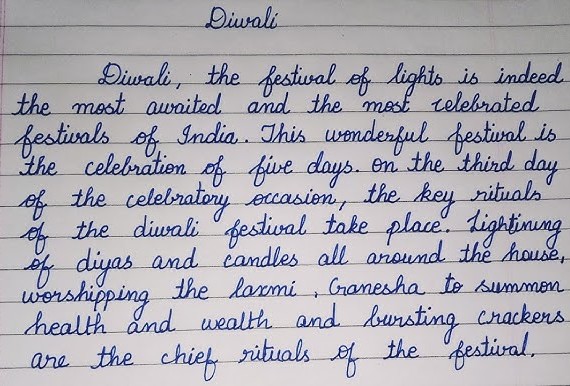 Diwali
Diwali, the festival of lights is indeed
the most awaited and the most celebrated
festivals of India. This wonderful festival is
the celebration of five days. On the third day
of the celebratory occasion, the key rituals
of the diwali festival take place. Lightining
of diyas and candles all around the house,
worshipping the laxmi, Ganesha to summon
health and wealth and bursting crackers
are the chief rituals of the festival.